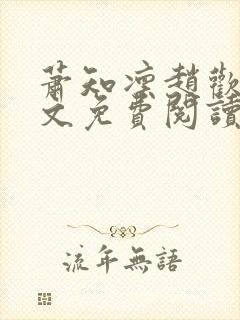 蕭知凛趙歡
文免費閱讀
流年無語